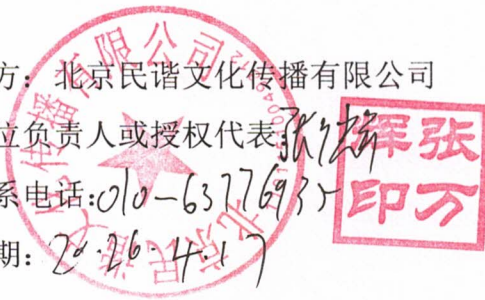 方：北京民谐文化传播有限公司
位负责人或授权代表：张
系电话：010-63776935
期：2026.4.17
北京民谐文化传播有限公司
张万
辉印